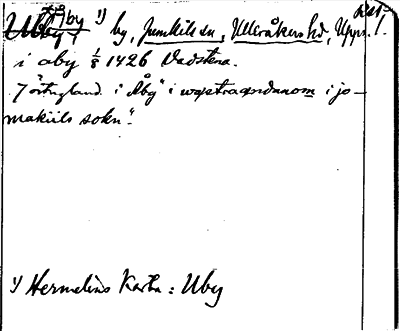 Åby
Uby ¹) by, Jumkils sn, Ulleråkers hd, Upps. l.
i aby 1/8 1426 Vadstena.
"7 örtugland i Åby" i wæstraændanom i jo-
makiils sokn".
¹) Hermelins Karta: Uby